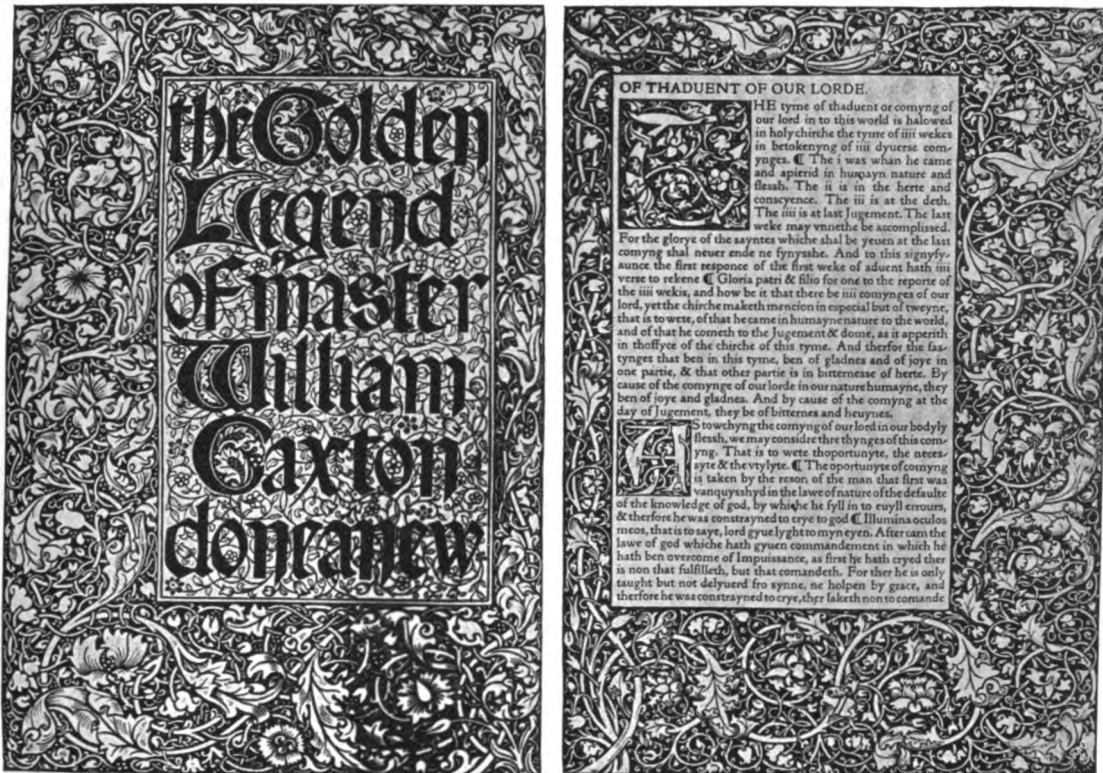 the Golden
Legend
of master
William
Caxton
done anew
OF THADUENT OF OUR LORDE.
THE tyme of thaduent or comyng of
our lord in to this world is halowed
in holy chirche the tyme of iiii wekes
in betokenyng of iiii dyuerse com-
ynges. ¶ The i was whan he came
and apierid in humayn nature and
flessh. The ii is in the herte and
conscyence. The iii is at the deth.
The iiii is at last Jugement. The last
weke may vnnethe be accomplised.
For the glorye of the sayntes whiche shal be yeuen at the last
comyng shal neuer ende ne fynysshe. And to this signyfy-
aunce the first responce of the first weke of aduent hath iiii
verse to rekene ¶ Gloria patri & filio for one to the reporte of
the iiii wekis, and how be it that there be iiii comynges of our
lord, yet the chirche maketh mencion in especial but of tweyne,
that is to wete, of that he came in humayne nature to the world,
and of that he cometh to the Jugement & dome, as it apperith
in thoffyce of the chirche of this tyme. And therfor the fas-
tynges that ben in this tyme, ben of gladnes and of joye in
one partie, & that other partie is in bitternesse of herte. By
cause of the comynge of our lorde in our nature humayne, they
ben of joye and gladnes. And by cause of the comyng at the
day of Jugement, they be of bitternes and heuynes.
AS towchyng the comyng of our lord in our bodyly
flessh, we may considre thre thynges of this com-
yng. That is to wete thoportunyte, the neces-
syte & the vtylyte. ¶ The oportunyte of comyng
is taken by the reson of the man that first was
vanquysshyd in the lawe of nature of the defaulte
of the knowledge of god, by whiche he fyll in to euyll errours,
& therfore he was constrayned to crye to god ¶ Illumina oculos
meos, that is to saye, lord gyue lyght to myn eyen. After cam the
lawe of god whiche hath gyuen commandement in which he
hath ben overcome of Impuissance, as first he hath cryed ther
is non that fulfilleth, but that comandeth. For ther he is only
taught but not delyuerd fro synne, ne holpen by grace, and
therfore he was constrayned to crye, ther laketh non to comande